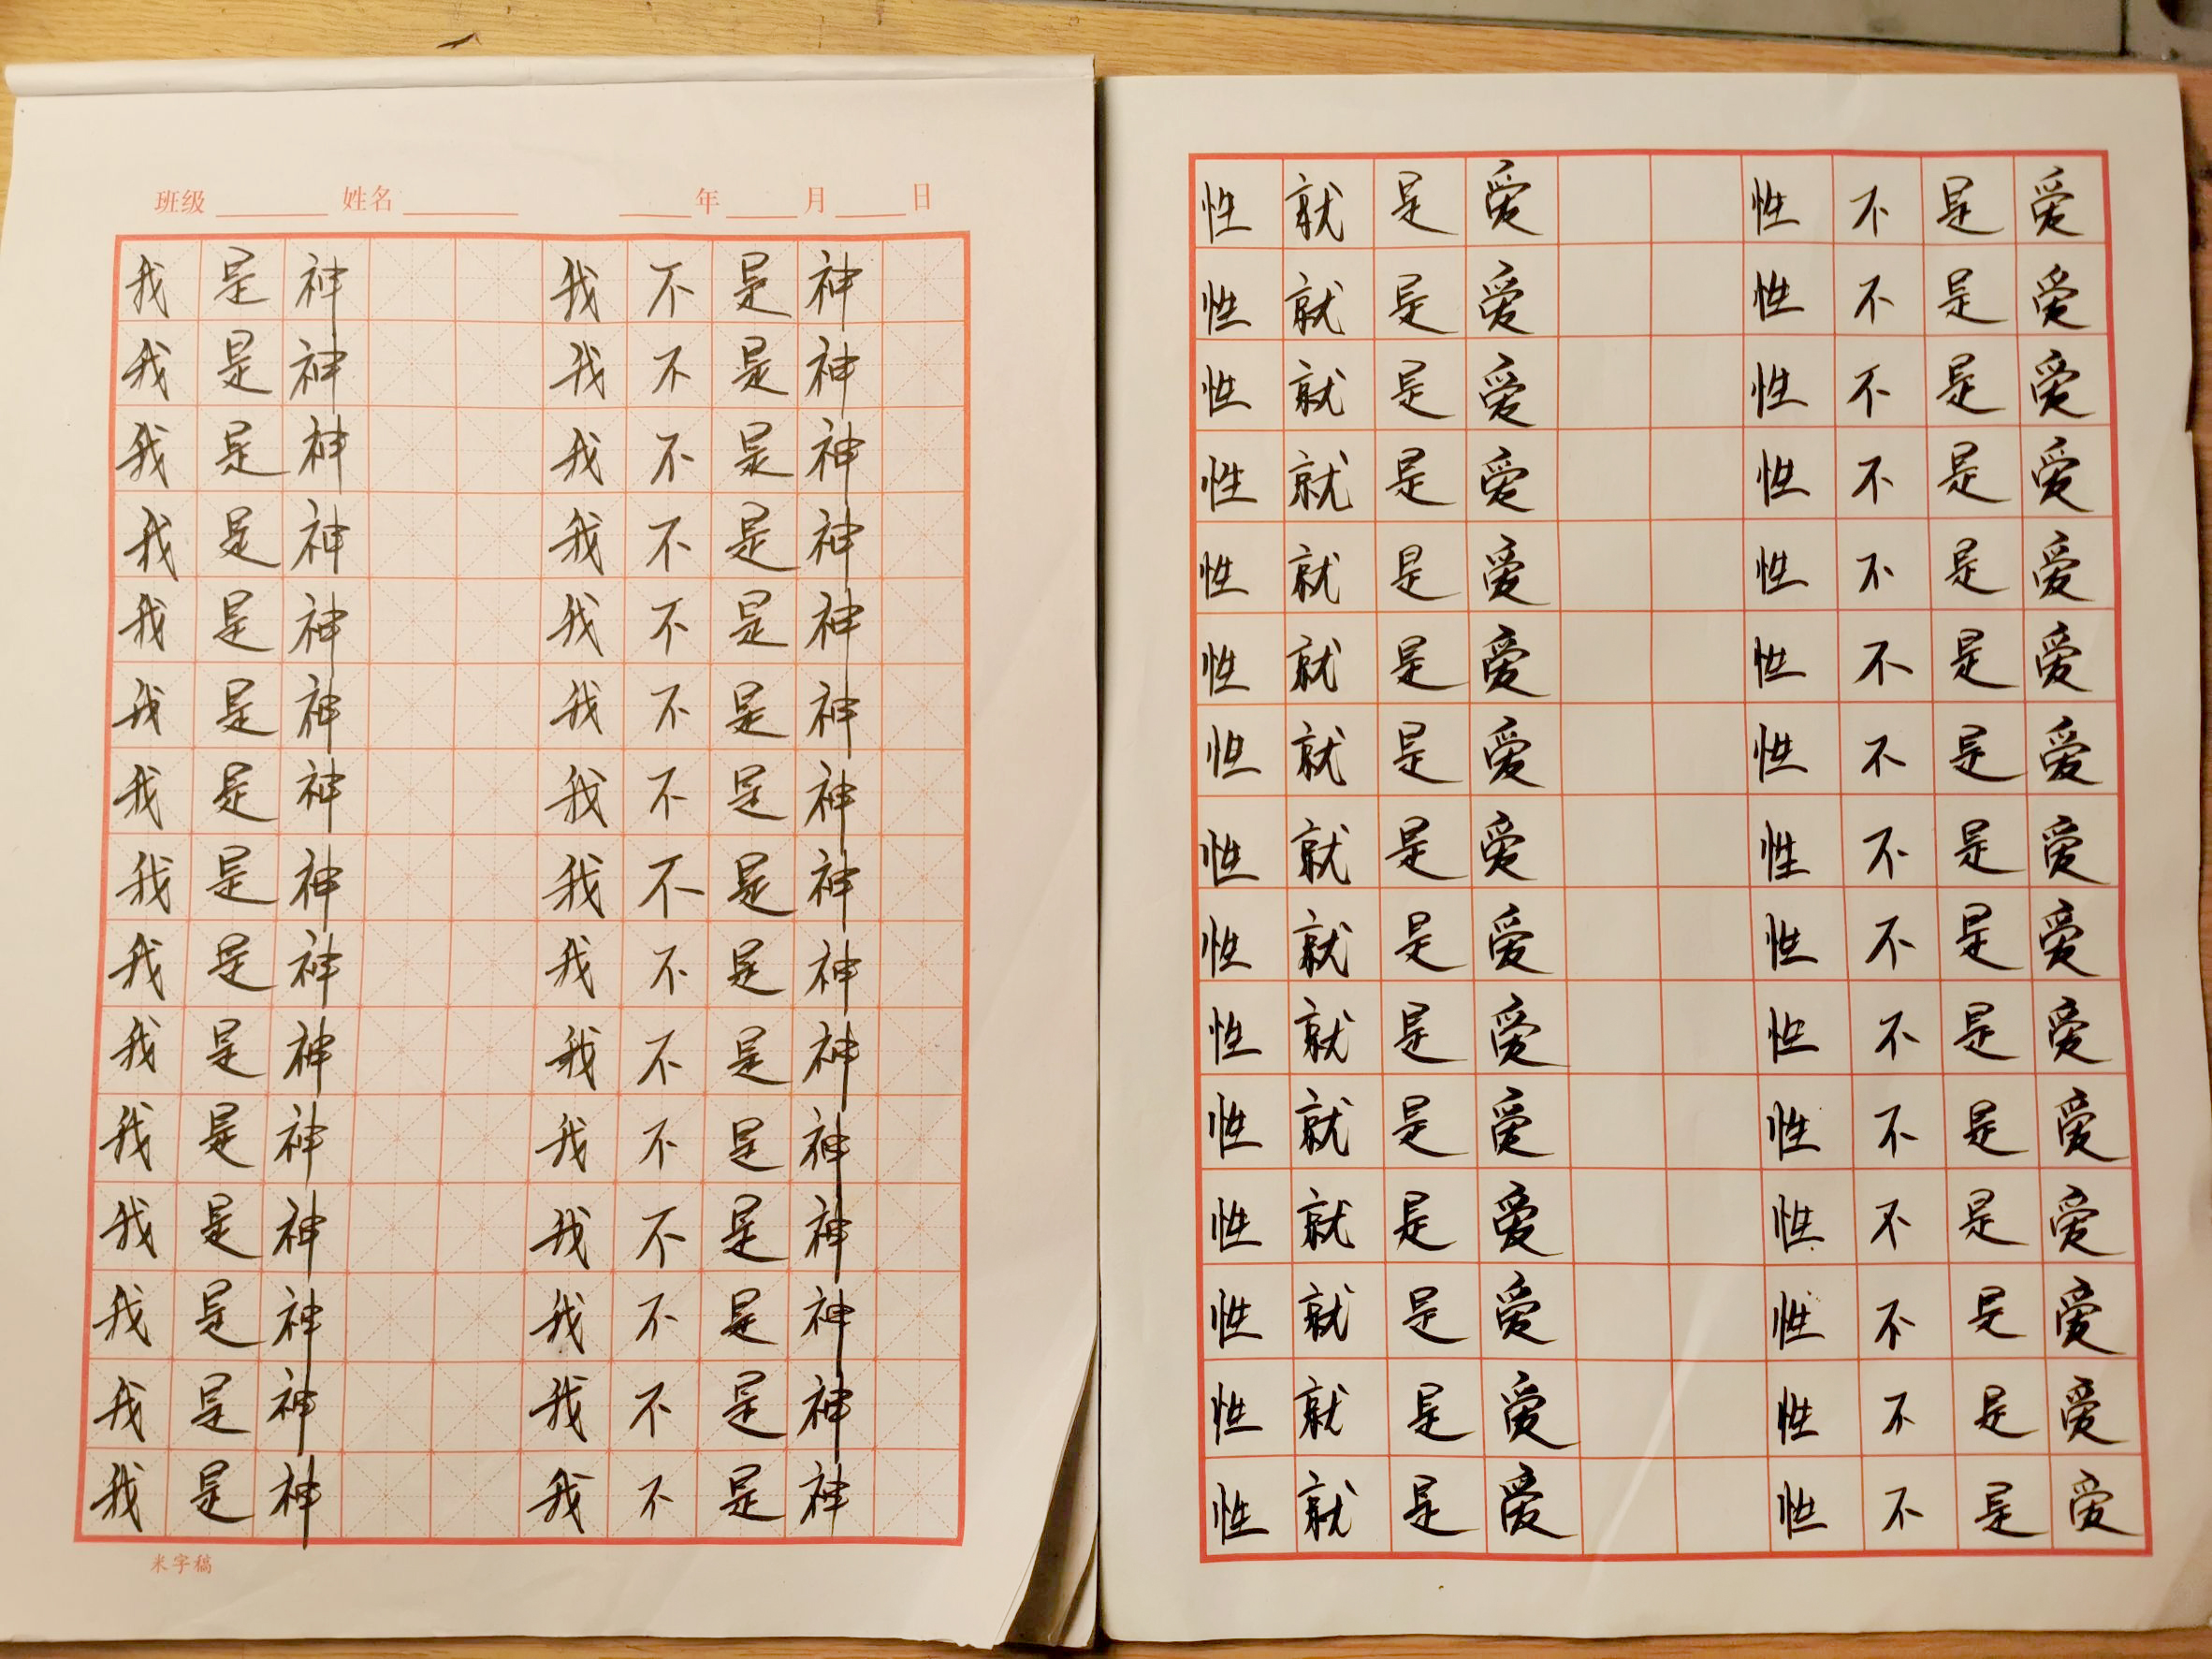 班级 姓名 年 月 日
我是神 我不是神
我是神 我不是神
我是神 我不是神
我是神 我不是神
我是神 我不是神
我是神 我不是神
我是神 我不是神
我是神 我不是神
我是神 我不是神
我是神 我不是神
我是神 我不是神
我是神 我不是神
我是神 我不是神
我是神 我不是神
我是神 我不是神
米字稿
性就是爱 性不是爱
性就是爱 性不是爱
性就是爱 性不是爱
性就是爱 性不是爱
性就是爱 性不是爱
性就是爱 性不是爱
性就是爱 性不是爱
性就是爱 性不是爱
性就是爱 性不是爱
性就是爱 性不是爱
性就是爱 性不是爱
性就是爱 性不是爱
性就是爱 性不是爱
性就是爱 性不是爱
性就是爱 性不是爱